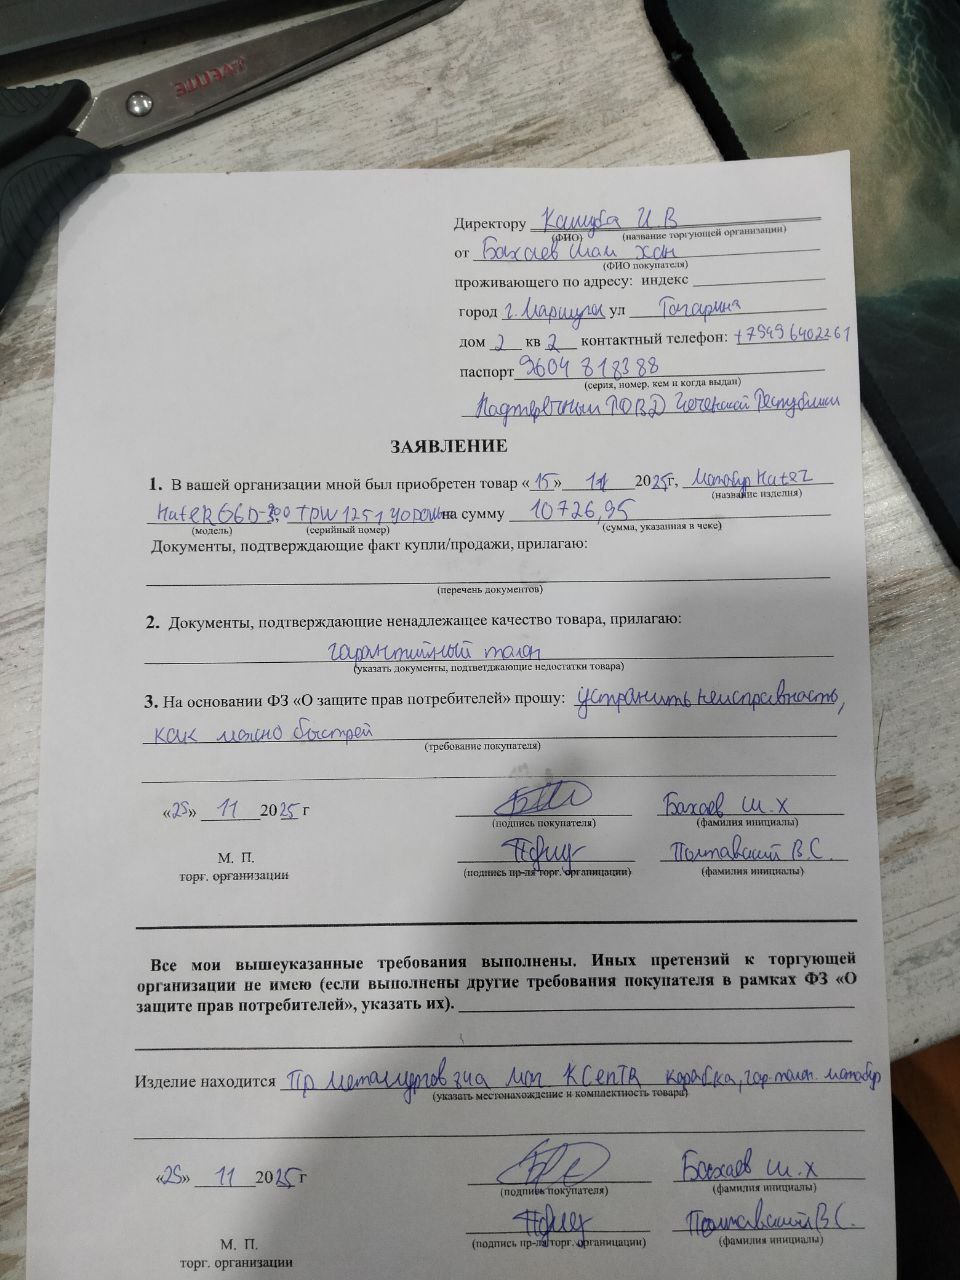 Директору Кашуба И В
(ФИО) (название торгующей организации)
от Бахаев Шах хан
(ФИО покупателя)
проживающего по адресу: индекс
город г. Мариуполь ул Гагарина
дом 2 кв 2 контактный телефон: +79496402261
паспорт 9604 818388
(серия, номер. кем и когда выдан)
Надтеречным РОВД Чеченской Республики
ЗАЯВЛЕНИЕ
1. В вашей организации мной был приобретен товар «15» 11 2025г, Мотобур Huter
(название изделия)
Huter GGD-300, на сумму 10726,95
(модель) (серийный номер) (сумма, указанная в чеке)
Документы, подтверждающие факт купли/продажи, прилагаю:
(перечень документов)
2. Документы, подтверждающие ненадлежащее качество товара, прилагаю:
гарантийный талон
(указать документы, подтветджающие недостатки товара)
3. На основании ФЗ «О защите прав потребителей» прошу: устранить неисправность,
как можно быстрей
(требование покупателя)
«25» 11 2025 г Бахаев Ш.Х
(подпись покупателя) (фамилия инициалы)
М. П. Полтавский В.С.
торг. организации (подпись пр-ля торг. органицации) (фамилия инициалы)
Все мои вышеуказанные требования выполнены. Иных претензий к торгующей
организации не имею (если выполнены другие требования покупателя в рамках ФЗ «О
защите прав потребителей», указать их).
Изделие находится Пр Металургов маг KCentR коробка, гар-талон. мотобур
(указать местонахождение и комплектность товара)
«25» 11 2025 г Бахаев Ш.Х
(подпись покупателя) (фамилия инициалы)
Полтавский В С.
М. П. (подпись пр-ля торг. органицации) (фамилия инициалы)
торг. организации